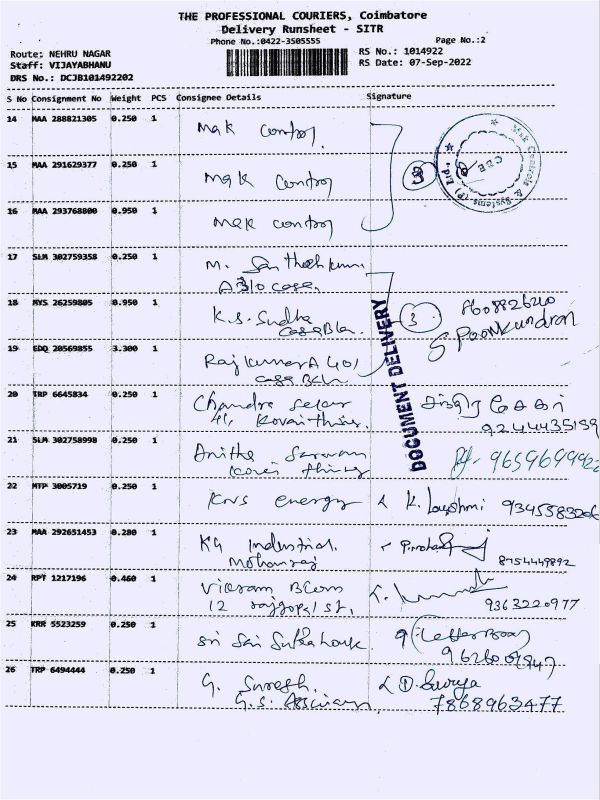 THE PROFESSIONAL COURIERS, Coimbatore
Delivery Runsheet - SITR
Phone No.:0422-3505555
Page No.:2
Route: NEHRU NAGAR
RS No.: 1014922
Staff: VIJAYABHANU
RS Date: 07-Sep-2022
DRS No.: DCJB101492202
S No Consignment No Weight PCS Consignee Details Signature
14 MAA 288821305 0.250 1 Mak control
15 MAA 291629377 0.250 1 Mak control
16 MAA 293768800 0.950 1 Mak control
Mak Controls & Systems (P) Ltd.
CBE
17 SLM 302759358 0.250 1 M. Santhosh kumar
A310 casa
18 MYS 26259805 0.950 1 K.S. Sudha
casa Bla
3
8608826210
S Poonkundran
19 EDQ 20569855 3.300 1 Raj kumar A 401
casa
DOCUMENT DELIVERY
20 TRP 6645834 0.250 1 Chandra sekar
சந்திரசேகர்
9244435159
21 SLM 302758998 0.250 1 Anitha Saravan
22 MTP 3005719 0.250 1 KNS energy K. Layshmi
23 MAA 292651453 0.280 1 KG Industrial
Mohanraj
8754449892
24 RPT 1217196 0.460 1 Vikram BCom
12 rajgopal st,
9363220977
25 KRR 5523259 0.250 1 Sri Sai
(Letter Box)
26 TRP 6494444 0.250 1 G. Suresh.
D. Surya
G.S.
7868963477